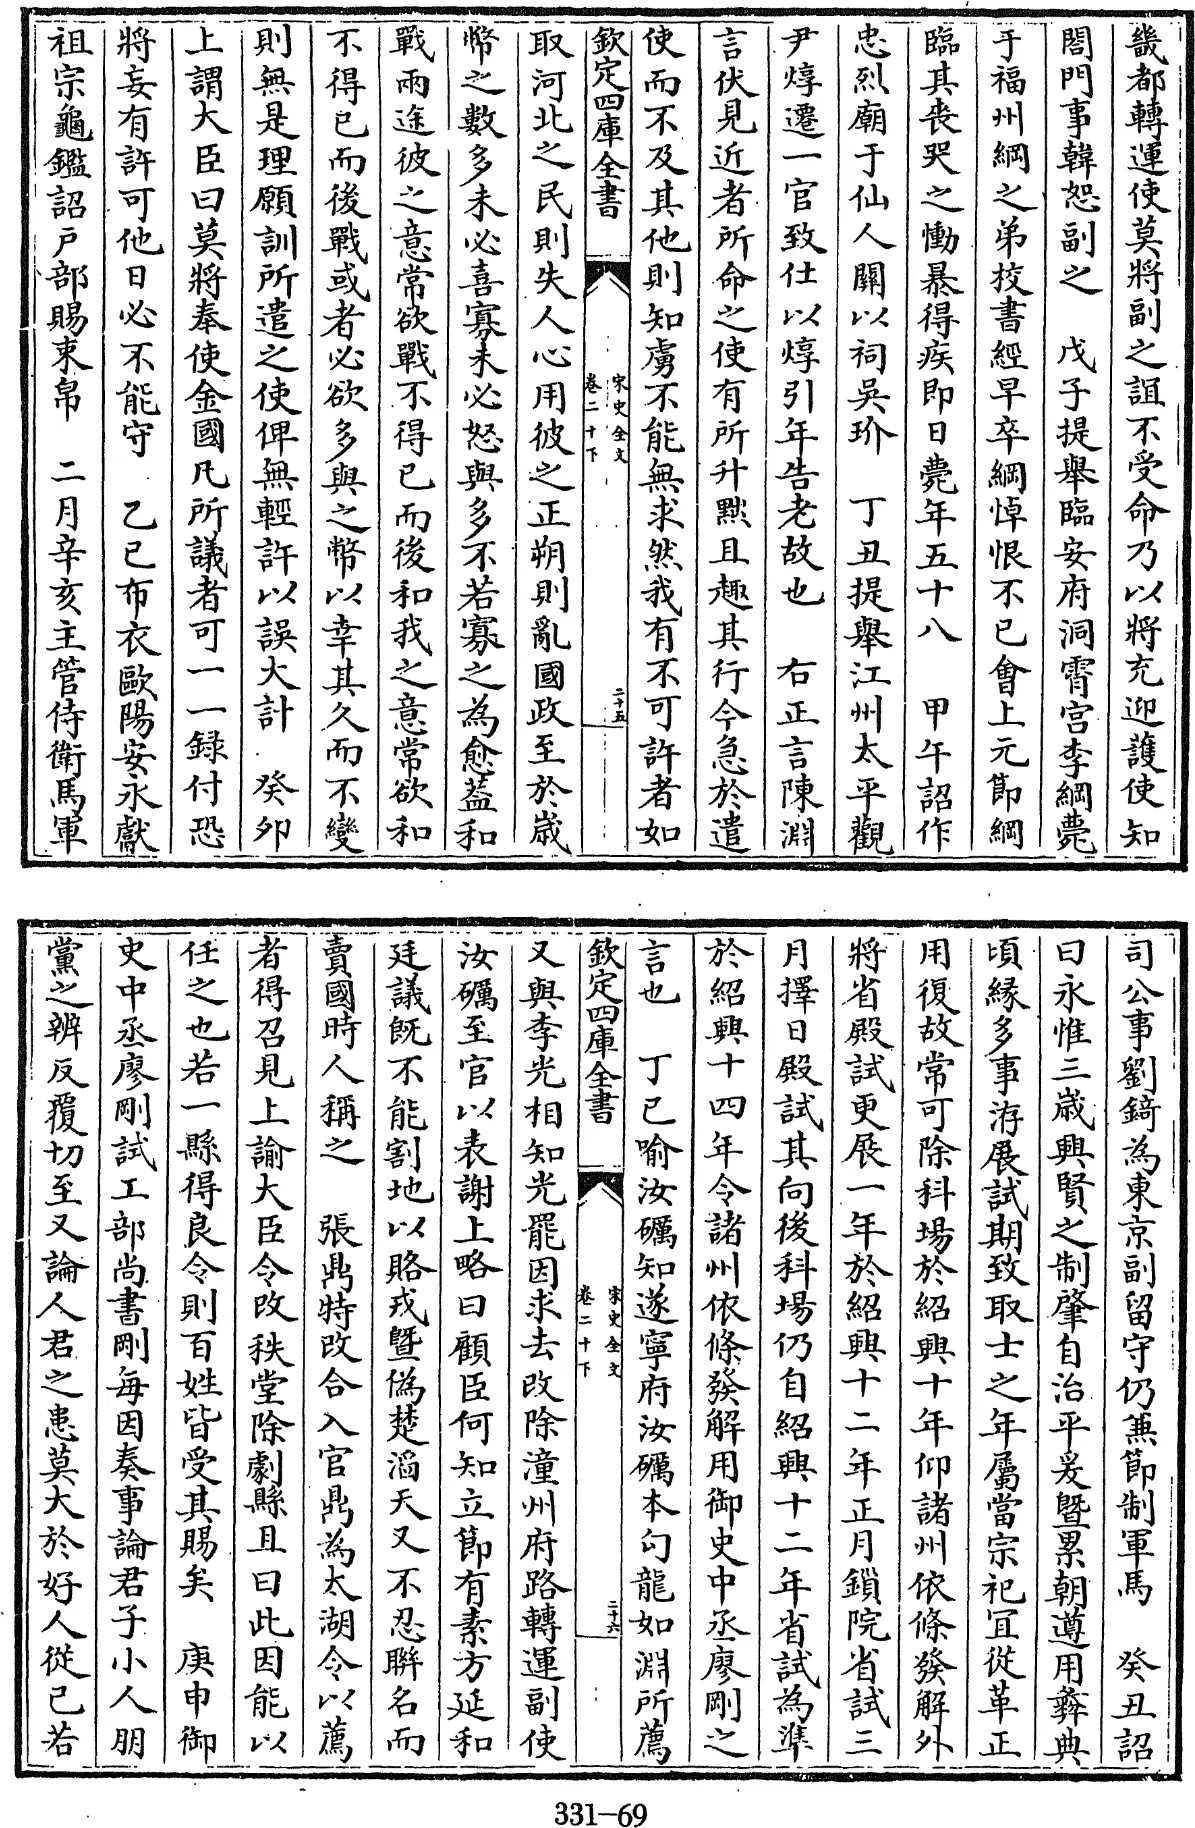 畿都轉運使莫將副之誼不受命乃以將充迎䕶使知
閤門事韓恕副之　戊子提舉臨安府洞霄宫李綱薨
于福州綱之弟校書經早卒綱悼恨不已會上元節綱
臨其丧哭之慟暴得疾即日薨年五十八　甲午詔作
忠烈廟于仙人關以祠吳玠　丁丑提舉江州太平觀
尹焞遷一官致仕以焞引年告老故也　右正言陳淵
言伏見近者所命之使有所升黜且趣其行今急於遣
使而不及其他則知虜不能無求然我有不可許者如
欽定四庫全書
宋史全文
卷二十下
二十五
取河北之民則失人心用彼之正朔則亂國政至於歳
幣之數多未必喜寡未必怒與多不若寡之為愈葢和
戰兩途彼之意常欲戰不得已而後和我之意常欲和
不得已而後戰或者必欲多與之幣以幸其久而不變
則無是理願訓所遣之使俾無輕許以誤大計　癸卯
上謂大臣曰莫將奉使金國凡所議者可一一録付恐
將妄有許可他日必不能守　乙已布衣歐陽安永獻
祖宗龜鑑詔户部賜束帛　二月辛亥主管侍衛馬軍
司公事劉錡為東京副留守仍兼節制軍馬　癸丑詔
曰永惟三歳興賢之制肇自治平爰暨累朝遵用彝典
頃縁多事洊展試期致取士之年屬當宗祀宜從革正
用復故常可除科場於紹興十年仰諸州依條發解外
將省殿試更展一年於紹興十二年正月鎖院省試三
月擇日殿試其向後科場仍自紹興十二年省試為準
於紹興十四年令諸州依條發解用御史中丞廖剛之
言也　丁已喻汝礪知遂寧府汝礪本勾龍如淵所薦
欽定四庫全書
宋史全文
卷二十下
二十六
又與李光相知光罷因求去改除潼州府路轉運副使
汝礪至官以表謝上略曰顧臣何知立節有素方延和
廷議既不能割地以賂戎暨偽楚滔天又不忍聨名而
賣國時人稱之　張鼎特改合入官鼎為太湖令以薦
者得召見上諭大臣令改秩堂除劇縣且曰此因能以
任之也若一縣得良令則百姓皆受其賜矣　庚申御
史中丞廖剛試工部尚書剛每因奏事論君子小人朋
黨之辨反覆切至又論人君之患莫大於好人從己若
331-69